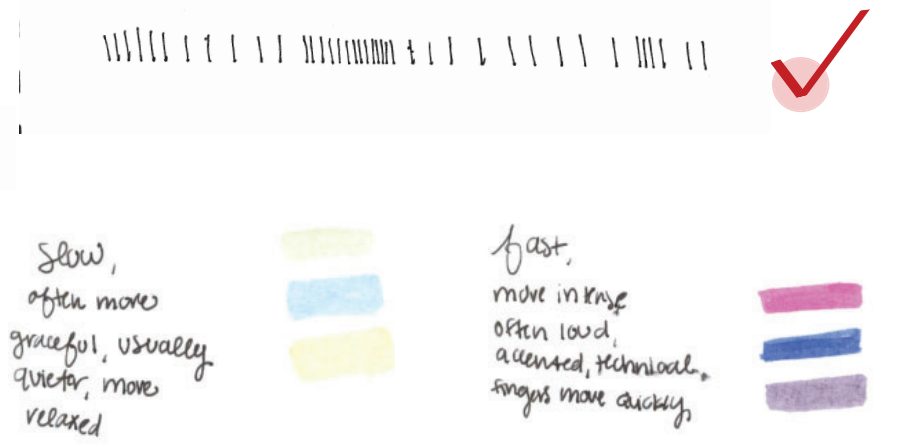 slow,
often more
graceful, usually
quieter, more
relaxed
fast,
more intense
often loud,
accented, technical,
fingers move quickly,